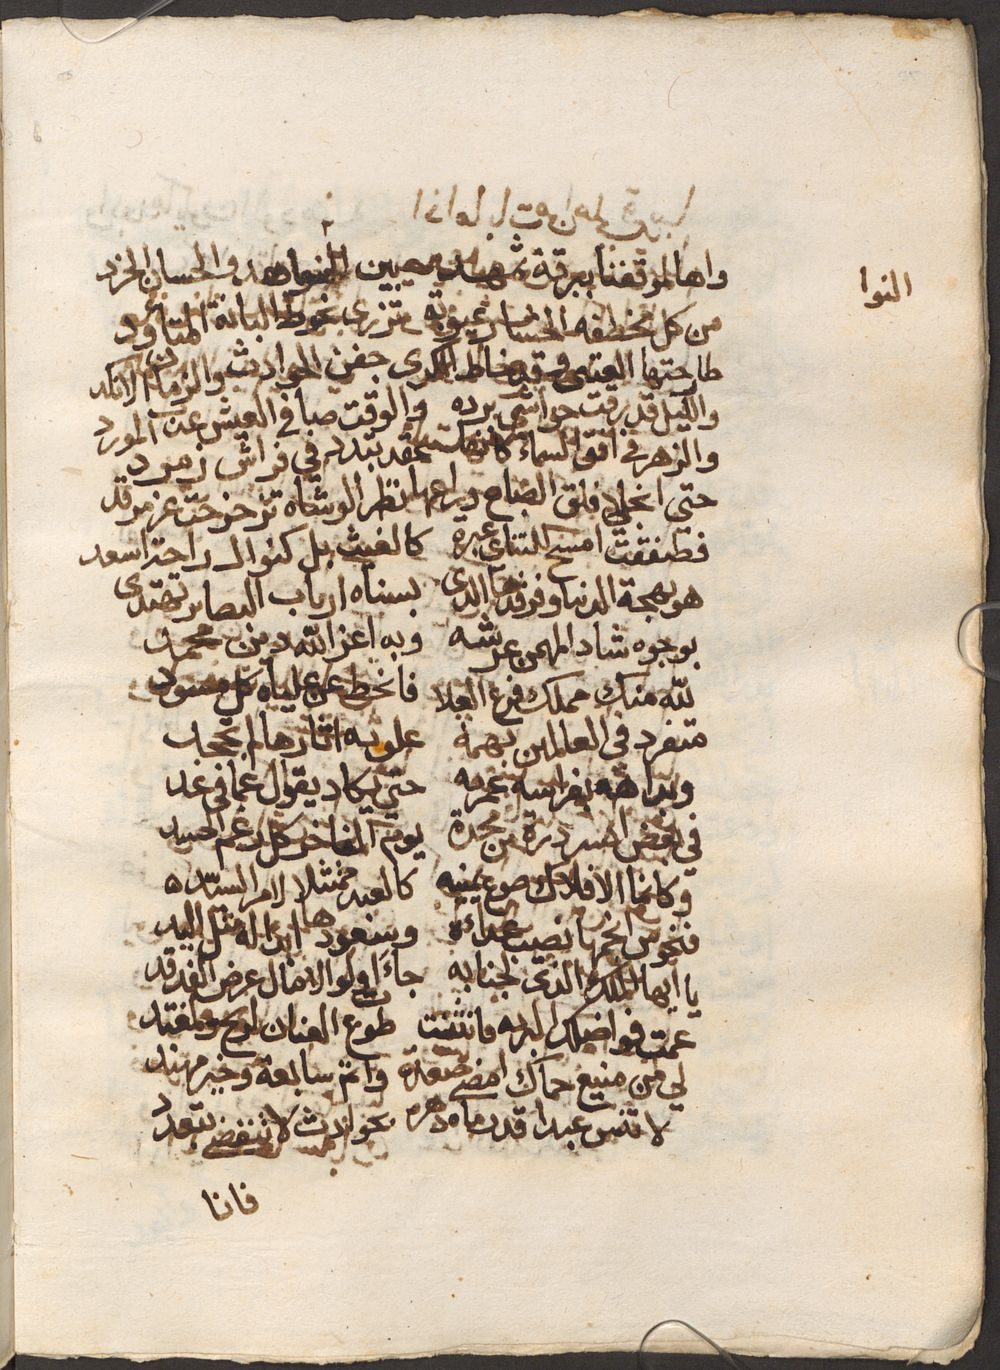 واها لموقفنا ببرقة ثهمد بين النواهد والحسان الخرد
النوا
من كل مخطفه الحشا تزري بخوط البانة المتأود
طارحتها العتبى وقد خاط الكرى جفن الحوادث والزمان الانكد
والليل قد رقت حواشي برده والوقت صافي العيش عذب المورد
والزهر في افق السماء كانها عقد تبدد في فراش زمرد
حتى انجلى فلق الصباح وراعها نظر الوشاة تزحزحت عن مرقد
فطفقت امسح للتنائي عبرة كالغيث بل كنوال راحة اسعد
هو بهجة الدنيا وفرقدها الذي بسناه ارباب البصائر تهتدي
بوجوده شاد المهيمن عرشه وبه اعز الله دين محمد
لله منك مملك فرع العلا فانحط عن علياه كل مسود
متفرد في العالمين بهمة علويه اثارها لم تجحد
وبداهة بفراسة عمريه حتى يكاد يقول عما في غد
في بعض ايسر ذرة من مجده يوم المفاخر كل رغم الحسد
وكانما الافلاك طوع يمينه كالعبد ممتثلا لامر السيد
فنحوس انجمها نصيب عداته وسعودها ابدا له مثل اليد
يا ايها الملك الذي لجنابه جاءَ اولو الامال عرض الفدفد
عمت فواضلك البريه فانثنت طوع العنان لرائح ولمغتد
لي من منيع حماك امضى صعدة واتم سابغة وخير مهند
لا تنس عبدا قد رماه دهره بحوادث لا تنقضي بتعدد
فانا